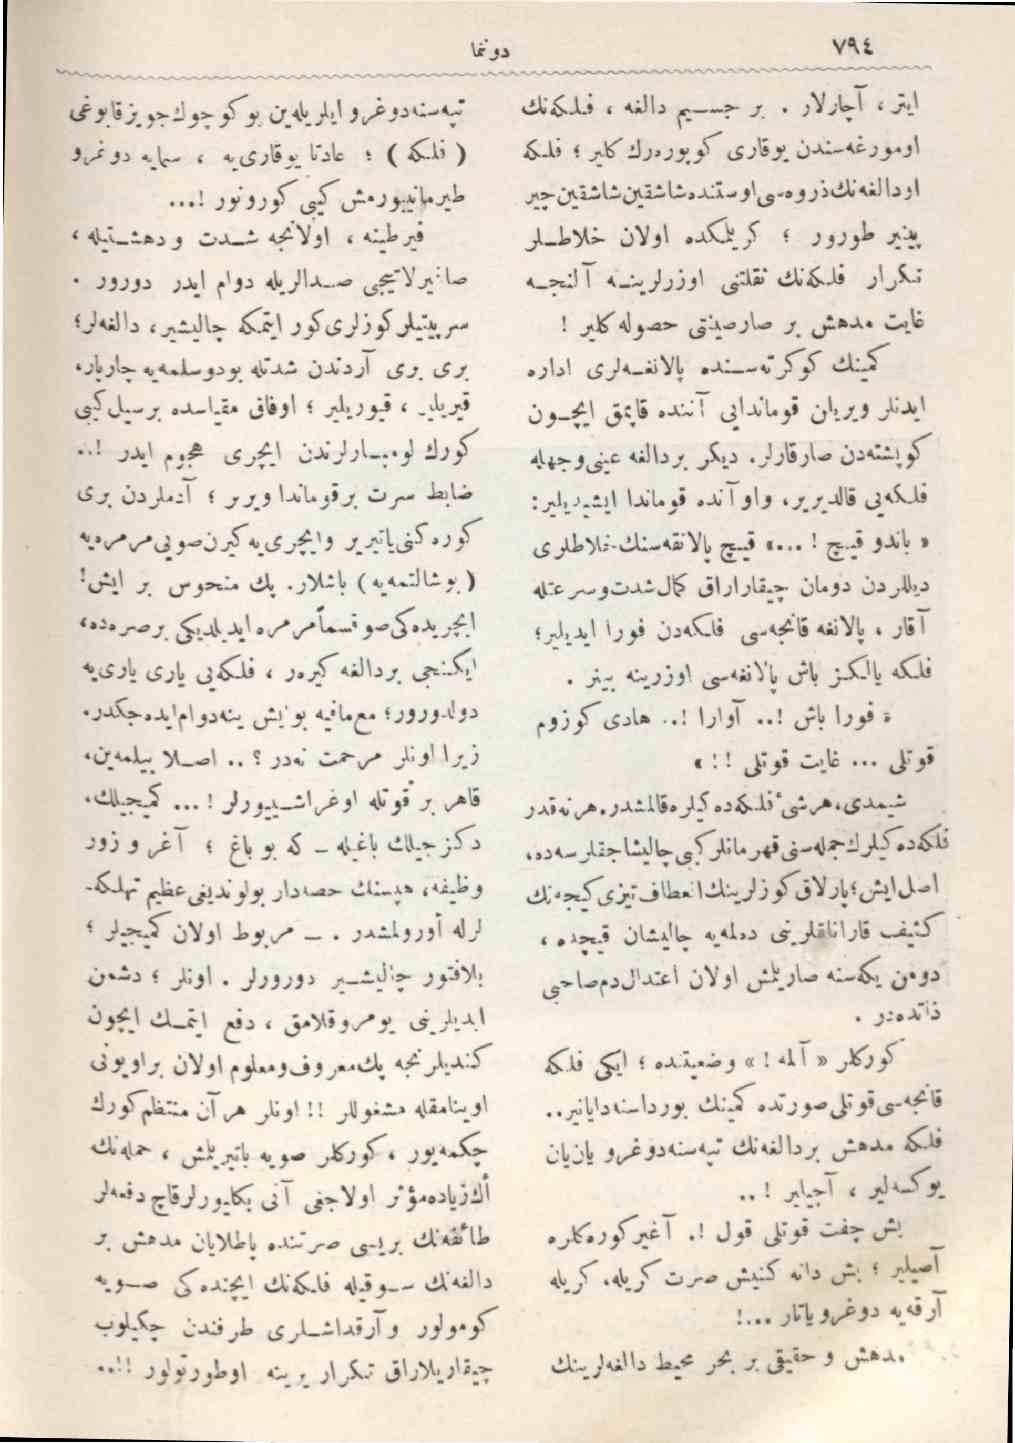 ٧٩٤
دوننما
ایتر ، آچارلار . بر جسیم دالغه ، فلكه‌نك
اوموزغه‌سندن یوقاری كوپوره‌رك كلیر ؛ فلكه
اودالغه‌نك ذروه‌سی اوستنده شاشقین شاشقین چیر
پینیر طورور ؛ كریلمكده اولان خلاطلر
تكرار فلكه‌نك ثقلتنی اوزرلرینه آلنجه
غایت مدهش بر صارصینتی حصوله كلیر !
كمینك كوكرته‌سنده پالانغه‌لری اداره
ایدنلر ویریلن قوماندایی آننده قاپمق ایچون
كوپشته‌دن صارقارلر. دیكر بر دالغه عینی وجهله
فلكه‌یی قالدیریر، و او آنده قوماندا ایشیدیلیر :
« باندو قیچ ! ...» قیچ پالانقه‌سنك خلاطلری
دیللردن دومان چیقاراراق كمال شدت وسرعتله
آقار ، پالانغه قانجه‌سی فلكه‌دن فورا ایدیلیر؛
فلكه یالكز باش پالانغه‌سی اوزرینه بینر .
« فورا باش !.. آوارا !.. هادی كوزوم
قوتلی ... غایت قوتلی !! »
شیمدی، هرشئ فلكه‌ده كیلره قالمشدر. هر نه‌قدر
فلكه‌ده كیلرك جمله‌سنی قهرمانلر كبی چالیشاجقلرسه‌ده،
اصل ایش ؛ پارلاق كوزلرینك انعطاف تیزی كیجه‌نك
كثیف قاراناقلرینی دلمه‌یه چالیشان قیچده ،
دومن یكه‌سنه صاریلمش اولان اعتدال دم صاحبی
ذاتده‌در .
كوركلر « آلمه ! » وضعیتنده ؛ ایكی فلكه
قانجه‌سی قوتلی صورتده كمینك بورداسنه دایانیر..
فلكه مدهش بر دالغه‌نك تپه‌سنه دوغرو یان یان
یوكسه‌لیر ، آچیلیر !..
بش چفت قوتلی قول !. آغیر كوره‌كلره
آصیلیر ؛ بش دانه كنیش صرت كریله، كریله
آرقه‌یه دوغرو یاتار ...!
مدهش و حقیقی بر بحر محیط دالغه‌لرینك
تپه‌سنه دوغرو ایلریله‌ین بو كوچوك جویز قابوغی
( فلكه ) ؛ عادتا یوقاری‌یه ، سمایه دوغرو
طیرمانییورمش كیبی كورونور !...
فیرطینه ، اولانجه شدت و دهشتیله ،
صاغیرلاتیجی صدالریله دوام ایدر دورور .
سرپینتیلر كوزلری كور ایتمكه چالیشیر، دالغه‌لر؛
بری بری آردندن شدتله بودوسلمه‌یه چارپار،
قیریلیر ، قیوریلیر ؛ اوفاق مقیاسده بر سیل كیبی
كورك لومبارلرندن ایچری هجوم ایدر !..
ضابط سرت بر قوماندا ویریر ؛ آدملردن بری
كوره‌كنی یاتیریر و ایچری‌یه كیرن صویی مرمره‌یه
( بوشالتمه‌یه ) باشلار. پك منحوس بر ایش!
ایچریده‌كی صو قسماً مرمره ایدیلدیكی بر صره‌ده،
ایكنجی بر دالغه كیره‌ر ، فلكه‌یی یاری یاری‌یه
دولدورور؛ مع‌مافیه بو ایش ینه دوام ایده‌جكدر.
زیرا اونلر مرحمت نه‌در ؟ .. اصلا بیلمه‌ین،
قاهر بر قوتله اوغراشییورلر !... كمیجیلك،
دكزجیلك باغیله ـ كه بو باغ ؛ آغر و زور
وظیفه، هپسنك حصه‌دار بولوندیغی عظیم تهلكه‌ـ
لرله اورولمشدر . ـ مربوط اولان كمیجیلر ؛
بلافتور چالیشیر دورورلر . اونلر ؛ دشمن
ابدیلرینی یومروقلامق ، دفع ایتمك ایچون
كندیلرنجه پك معروف و معلوم اولان بر اویونی
اوینامقله مشغوللر !! اونلر هر آن منتظم كورك
چكمه‌یور ، كوركلر صویه باتیریلمش ، حمله‌نك
أك زیاده مؤثر اولاجغی آنی بكلیورلر قاچ دفعه‌لر
طائفه‌نك بریسی صرتنده پاطلایان مدهش بر
دالغه‌نك سوقیله فلكه‌نك ایچنده‌كی صویه
كومولور و آرقداشلری طرفندن چكیلوب
چیقاریلاراق تكرار یرینه اوطورتولور !!..